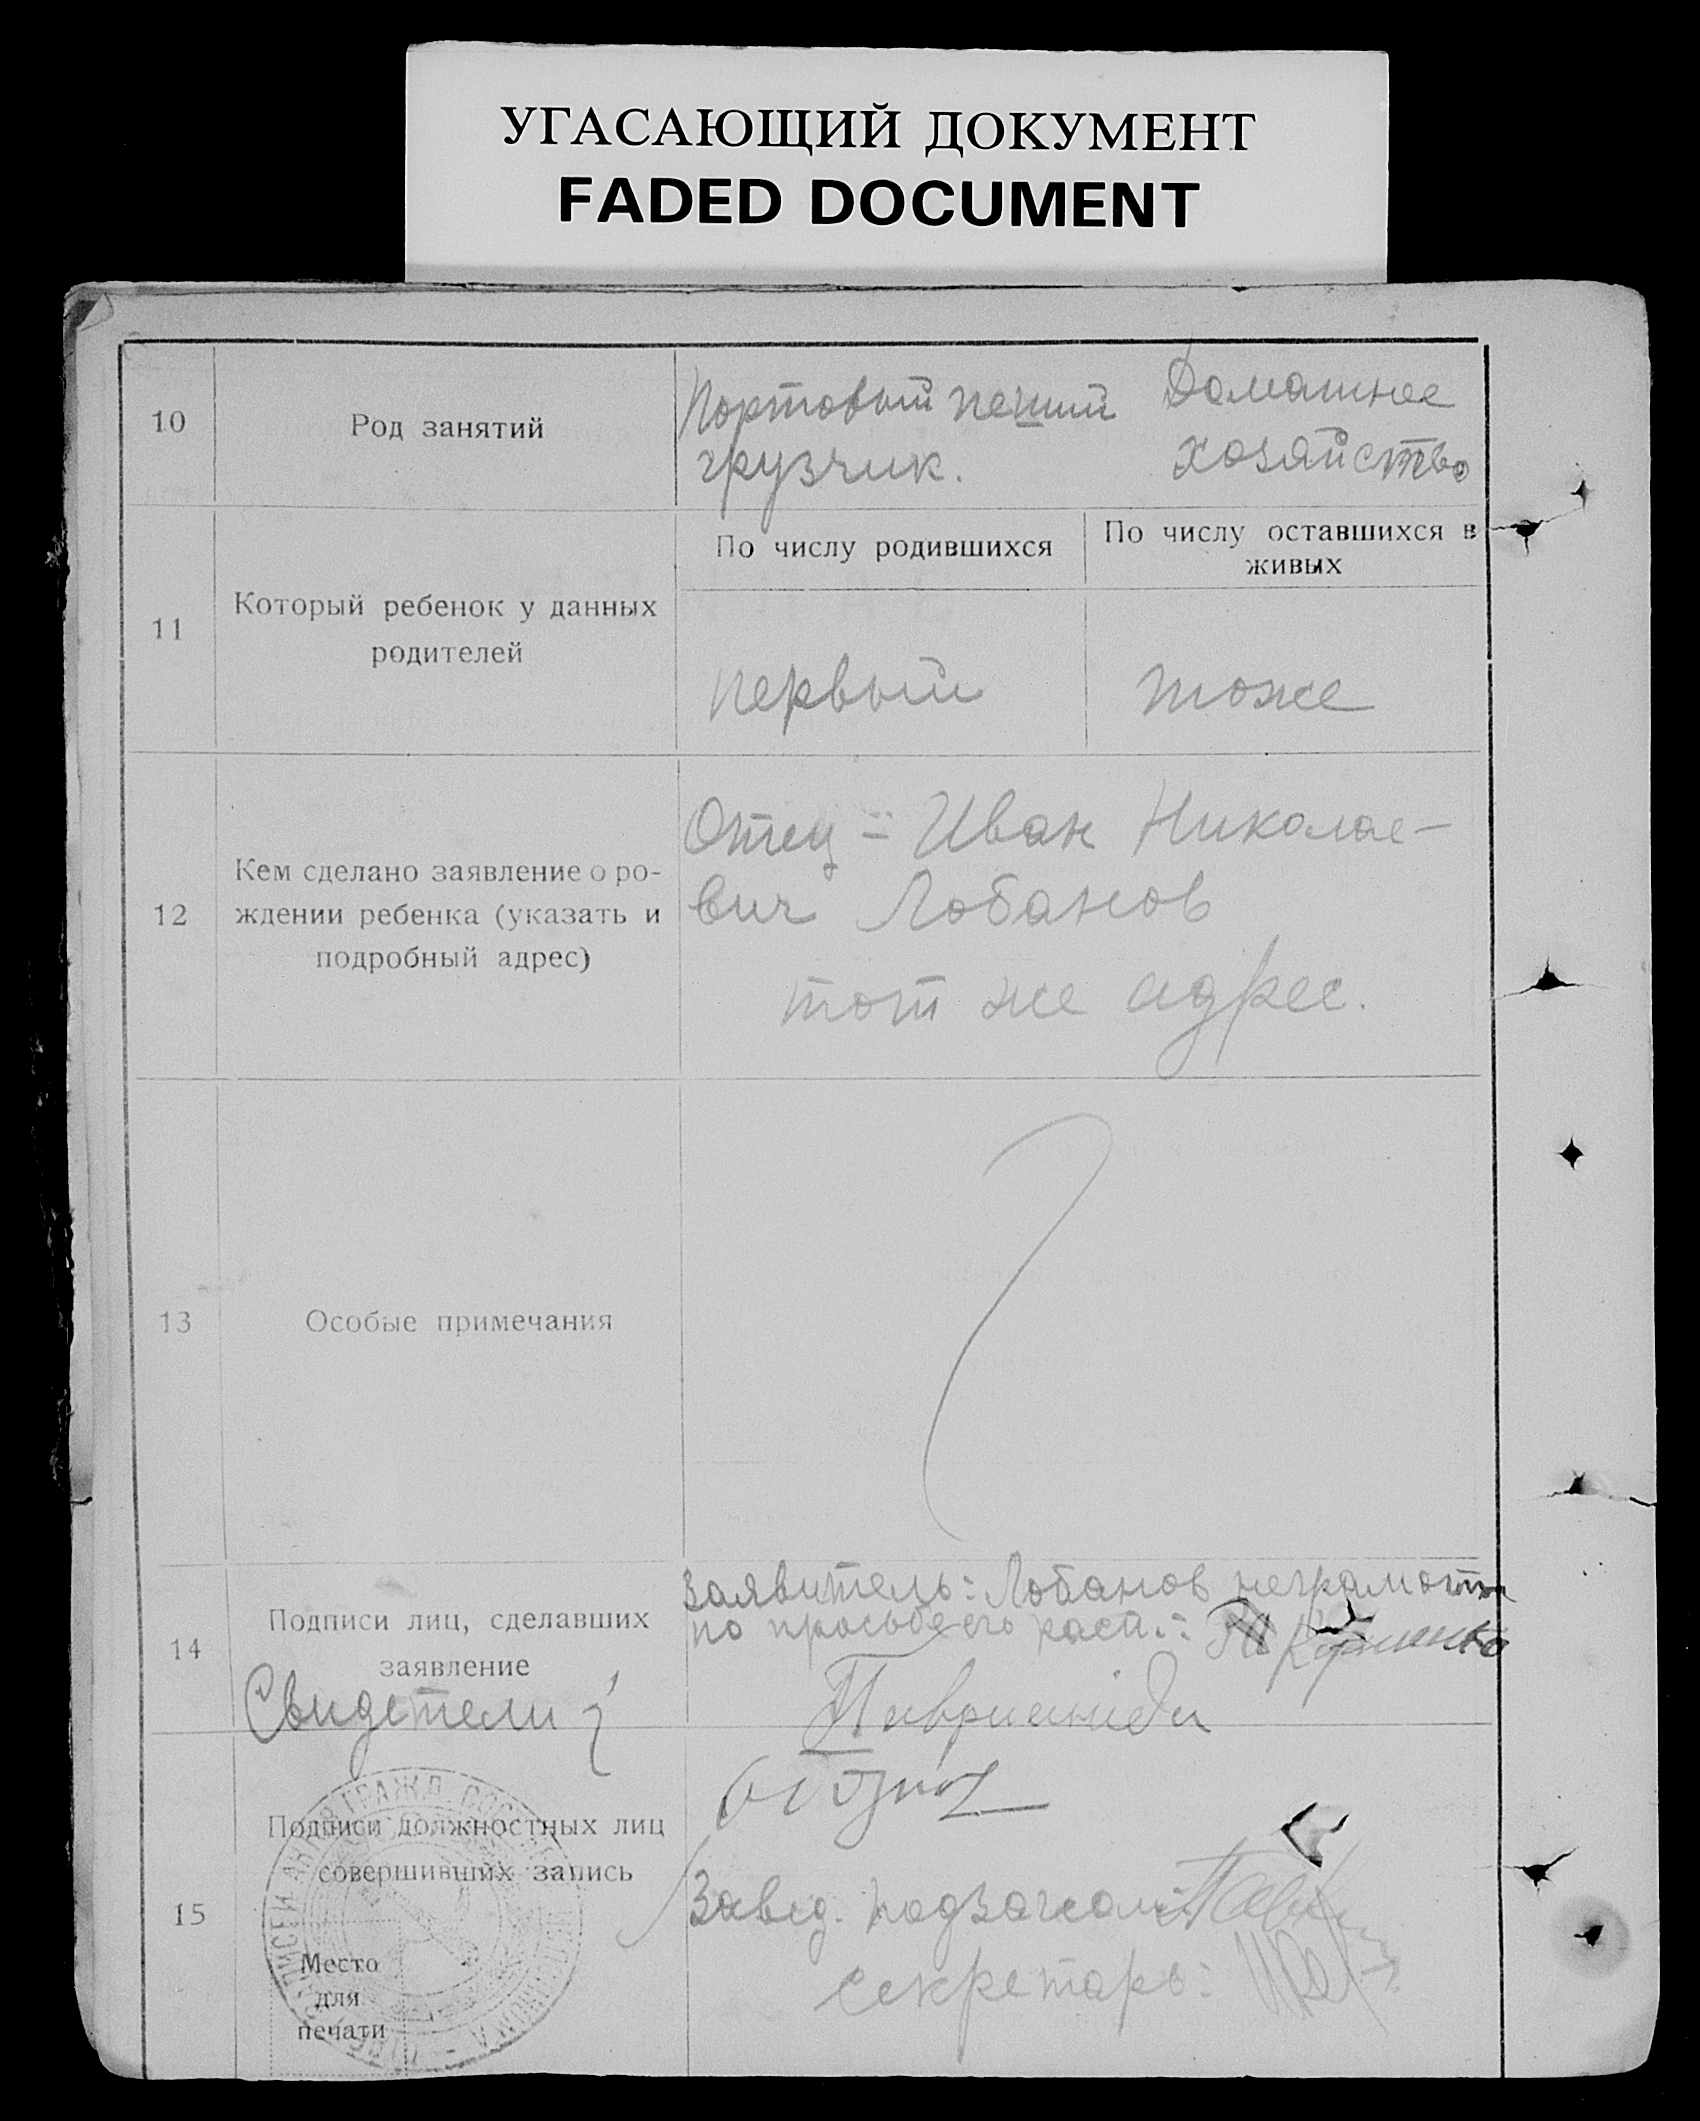 УГАСАЮЩИЙ ДОКУМЕНТ
FADED DOCUMENT
10
Род занятий
Портовый пеший
грузчик.
Домашнее
хозяйство
11
Который ребенок у данных
родителей
По числу родившихся
По числу оставшихся в
живых
первый
тоже
12
Кем сделано заявление о ро-
ждении ребенка (указать и
подробный адрес)
Отец = Иван Николае-
вич Лобанов
тот же адрес.
13
Особые примечания
14
Подписи лиц, сделавших
заявление
Свидетели
заявитель: Лобанов неграмотн
по просьбе его расп.:
15
Подписи должностных лиц
совершивших запись
Место
для
печати
Завед. подзагсом:
секретарь: